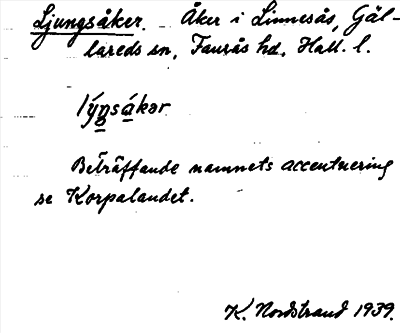 Ljungsåker. Åker i Linnesås, Gäl-
lareds sn, Faurås hd, Hall. l.
Beträffande namnets accentuering
se Korpalandet.
K. Nordstrand 1939.